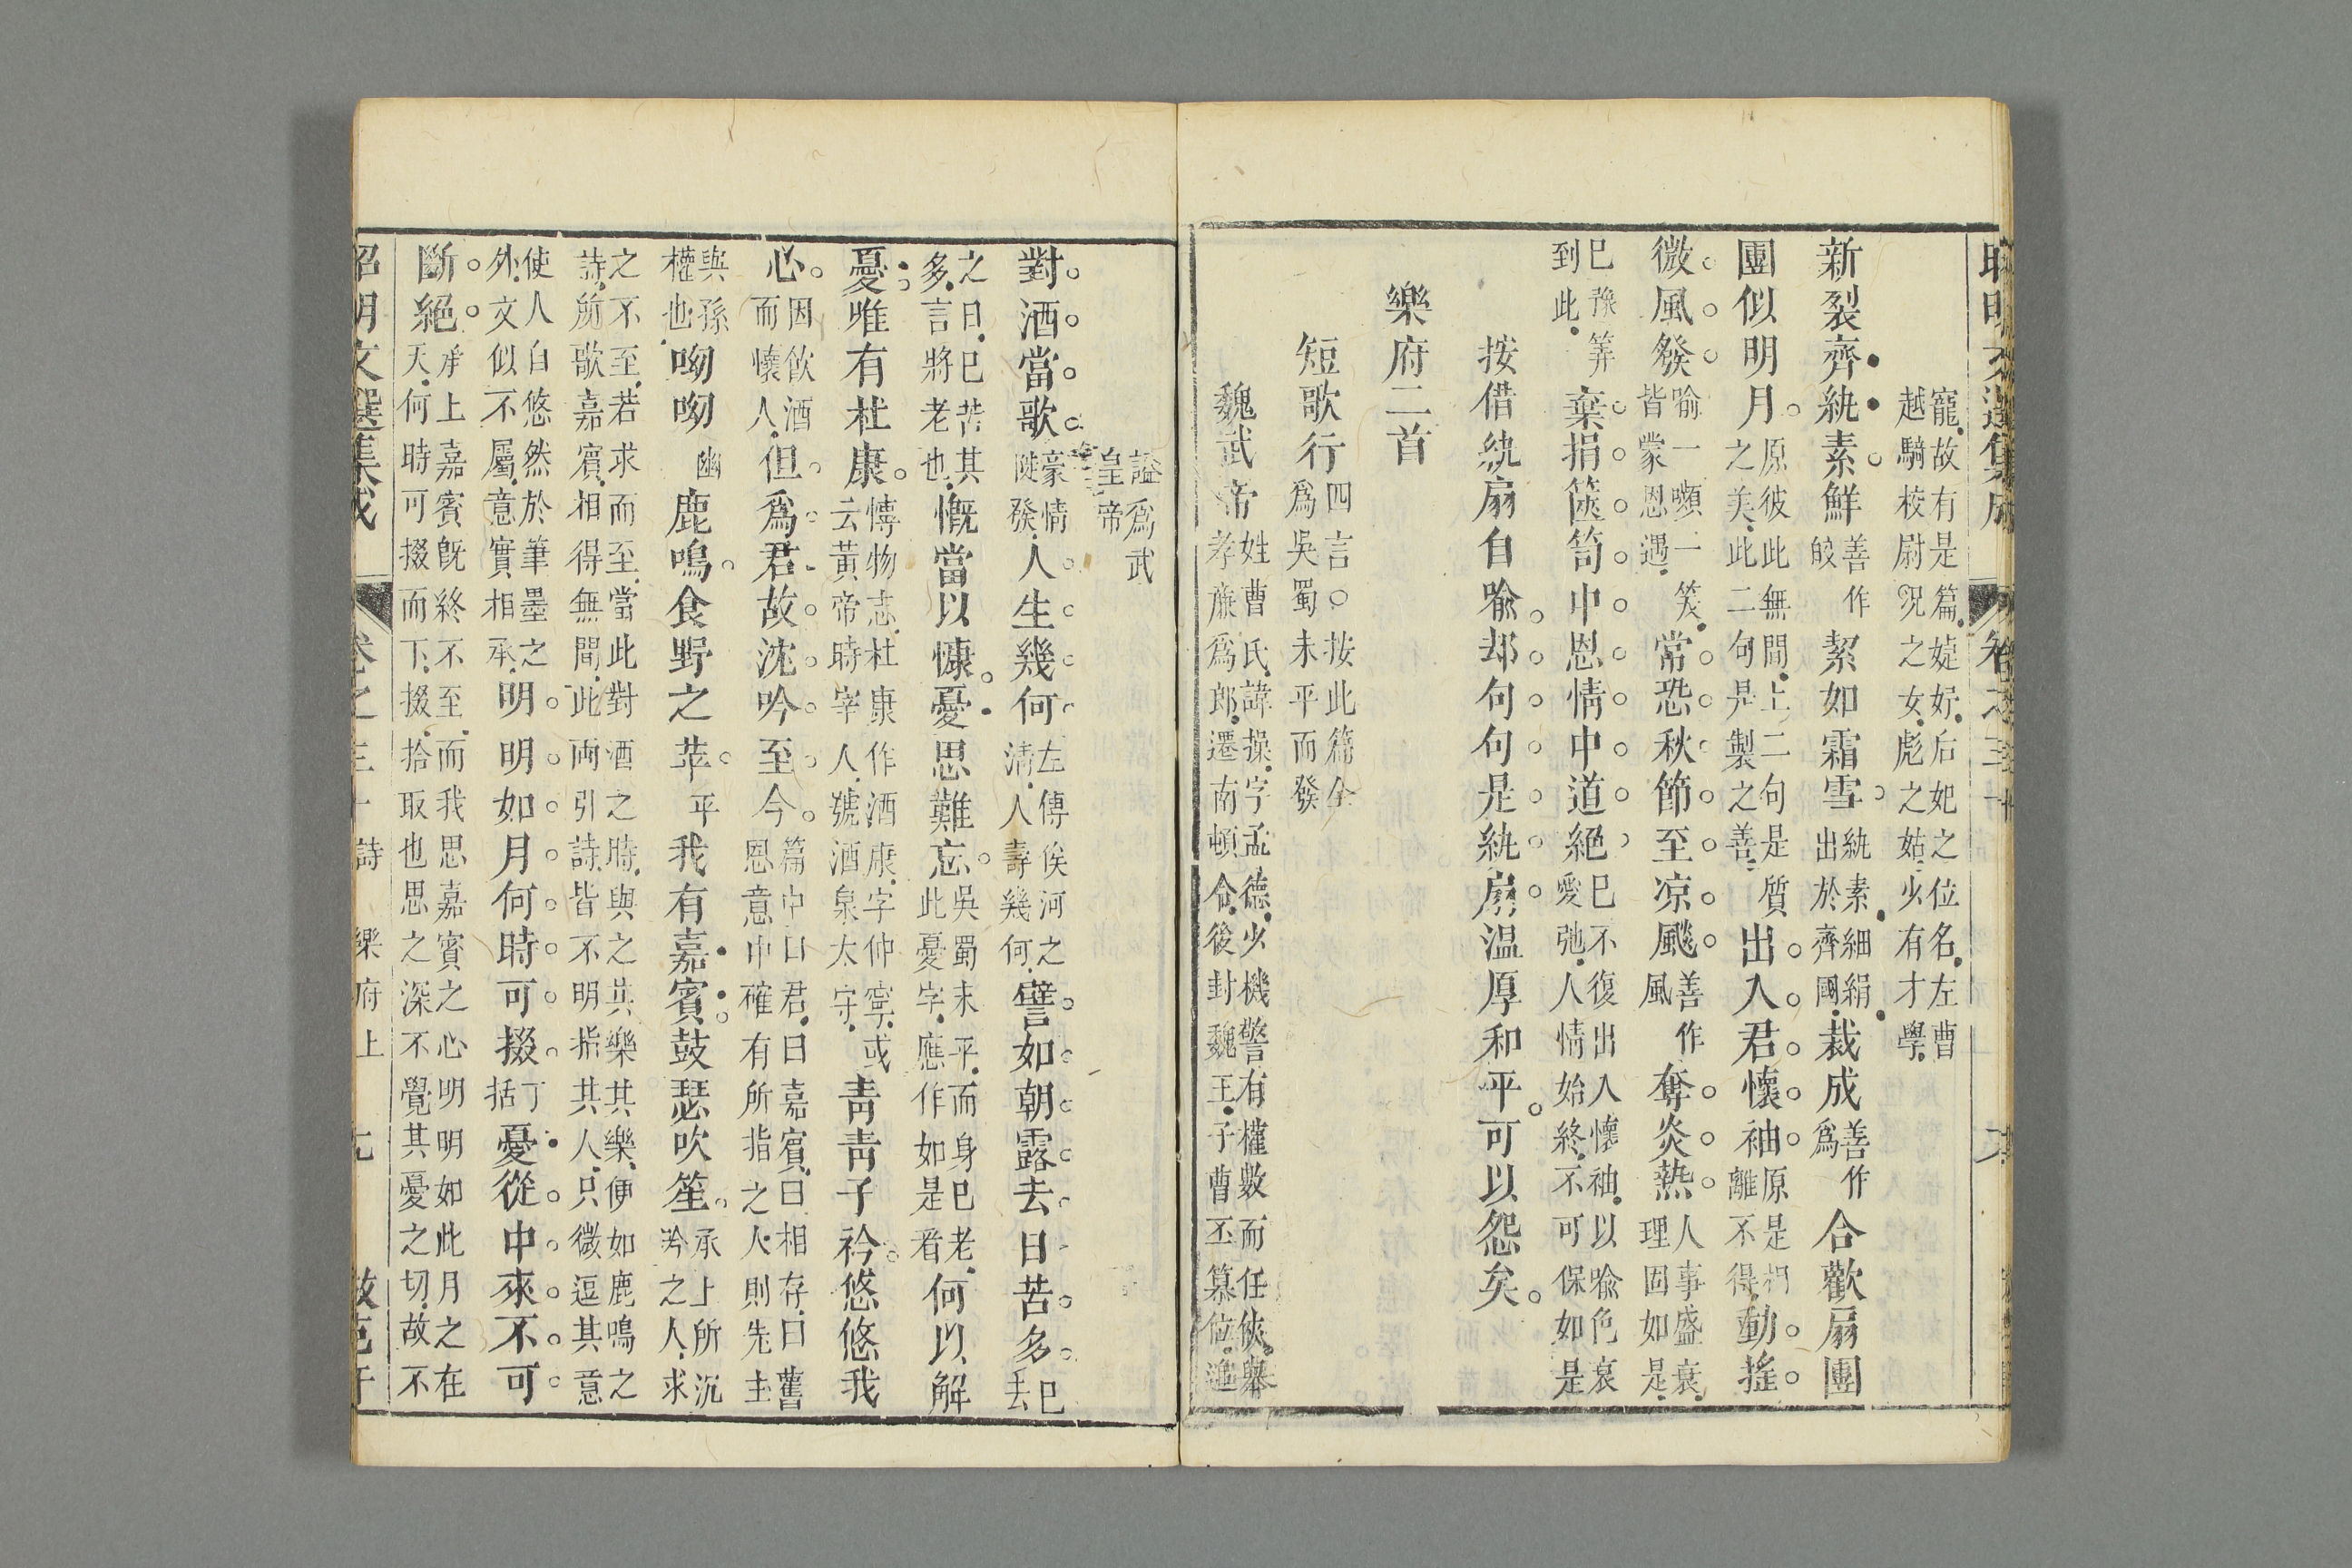 寵故有是篇婕妤后妃之位名左曹
越騎校尉況之女彪之姑少有才學
新裂齊紈素鮮善作皎絜如霜雪紈素細絹出於齊國裁成善作爲合歡扇團
團似明月原彼此無間上二句是質之美此二句是製之善出入君懷袖原是相離不得動搖
微風發喻一嚬一笑皆蒙恩遇常恐秋節至凉飈善作風奪炎熱人事盛衰理固如是
已豫筭到此棄捐篋笥中恩情中道絕已不復出入懷袖以喻色衰愛弛人情始終不可保如是
按借紈扇自喻却句句是紈扇温厚和平可以怨矣
樂府二首
短歌行四言○按此篇全爲吳蜀未平而發
魏武帝姓曹氏諱操字孟德少機警有權數而任俠舉孝廉爲郎遷南頓令後封魏王子曹丕篡位追
謚爲武皇帝
對酒當歌豪情陡發人生幾何左傳俟河之清人壽幾何譬如朝露去日苦多已去
之日已苦其多言將老也慨當以慷憂思難忘吳蜀未平而身已老此憂字應作如是看何以解
憂唯有杜康博物志杜康作酒康字仲寧或云黃帝時宰人號酒泉太守青青子衿悠悠我
心因飲酒而懷人但爲君故沈吟至今篇中曰君曰嘉賓曰相存曰舊恩意中確有所指之人則先主
與孫權也呦呦幽鹿鳴食野之苹平我有嘉賓鼓瑟吹笙承上所沉吟之人求
之不至若求而至當此對酒之時與之共樂其樂便如鹿鳴之詩所歌嘉賓相得無間此兩引詩皆不明指其人只微逗其意
使人自悠然於筆墨之外文似不屬意實相承明明如月何時可掇丁括憂從中來不可
斷絕承上嘉賓旣終不至而我思嘉賓之心明明如此月之在天何時可掇而下掇拾取也思之深不覺其憂之切故不
昭明文選集成 卷之三十詩 樂府上